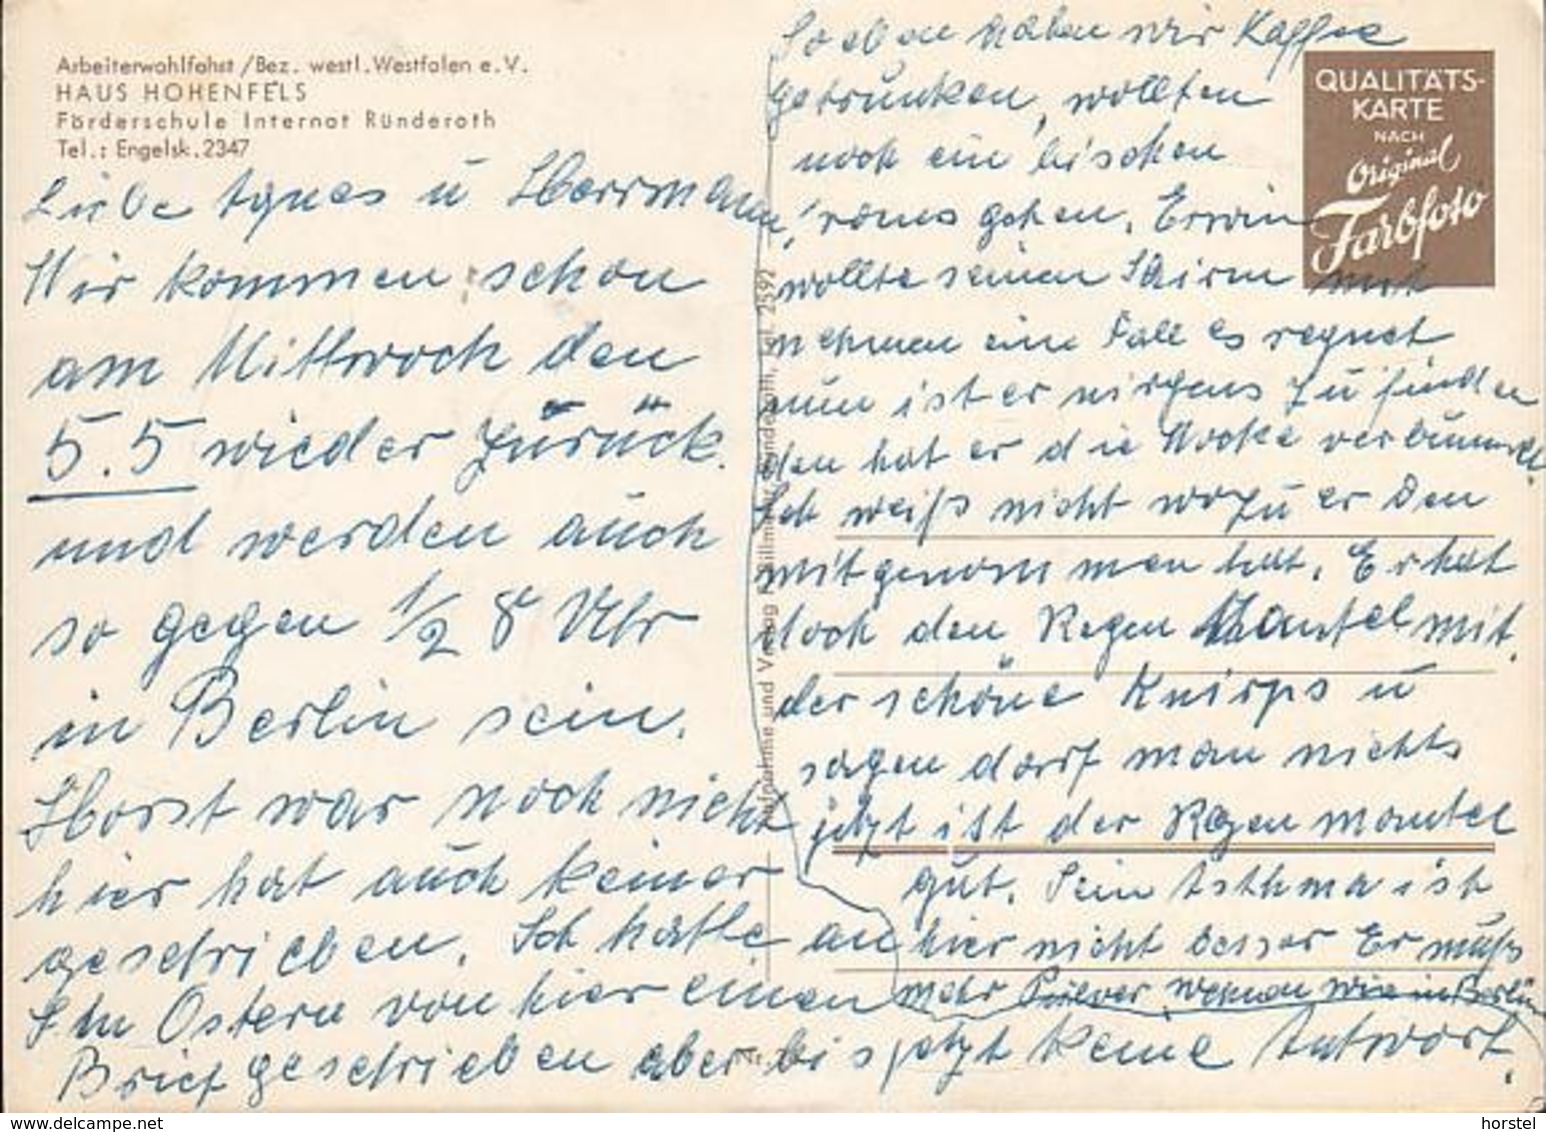 Arbeiterwohlfahst/Bez. westl. Westfalen e. V.
HAUS HOHENFELS
Förderschule Internat Ründeroth
Tel.: Engelsk. 2347
Liebe Agnes u Herrmann,
Wir kommen schon
am Mittwoch den
5.5 wieder zurück.
und werden auch
so gegen 1/2 8 Uhr
in Berlin sein.
Horst war noch nicht
hier hat auch keiner
geschrieben. Ich hatte an
Ihn Ostern von hier einen
Brief geschrieben aber bis jetzt keine Antwort.
Soeben haben wir Kaffee
getrunken, wollten
noch ein bischen
raus gehen. Erwin
wollte seinen Schirm mit
nehmen ein Fall es regnet
nun ist er nirgens zu finden
den hat er die Woche verbummelt.
Ich weiß nicht wozu er den
mitgenommen hat. Er hat
doch den Regen Mantel mit.
der schöne Knirps u
sagen darf man nichts
jetzt ist der Regenmantel
gut. Sein Asthma ist
hier nicht besser Er muß
mehr Pulver nehmen wie in Berlin
QUALITÄTS-
KARTE
NACH
Original
Farbfoto
Aufnahme und Verlag
2592
horstel